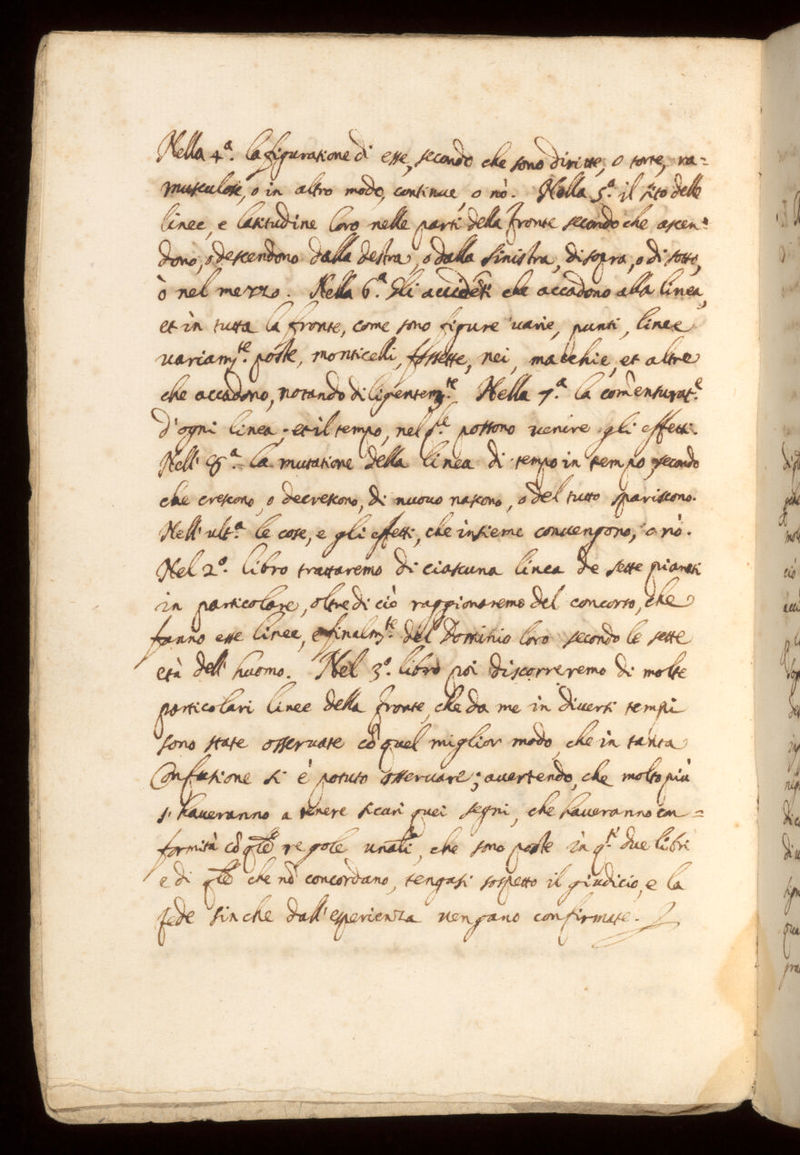 Nella 4ª. la figuratione di esse, secondo che sono diritte, o torte, ra=
musculose, o in altro modo, continue, o nò. Nella 5ª. il sito delle
linee, e latitudine loro nelle parti della fronte secondo che ascen=
dono, o descendono dalla destra, o dalla sinistra, di sopra, o di sotto,
ò nel mezzo. Nella 6ª. Gli accidẽti che accadono alla linea,
et in tutta la fronte, come sono figure varie, punti, linee
variamᵗᵉ. poste, monticelli, fossette, nei, macchie, et altre
che accadono, notando diligentemᵗᵉ. Nella 7ª. la comẽnsuratᵉ
d'ogni linea, et il tempo, nel qˡᵉ possono venire gli effetti.
Nell' 8ª. la mutatione della linea di tempo in tempo secondo
che crescono, o decrescono, di nuovo nascono, o del tutto spariscono.
Nell' ultª. le cose, e gli effetti, che insieme convengono, o nò.
Nel 2º. libro trattaremo di ciascuna linea de sette pianeti
in particolare, oltre di ciò raggionaremo del concorso, che
fanno esse linee, e finalmᵗᵉ. del Dominio loro secondo le sette
età dell' huomo. Nel 3º. libro poi discorreremo di molte
particolari linee della fronte, che da me in diversi tempi
sono state osservate cõ quel miglior modo, che in tanta
Confusione si è potuto osservare; avertendo, che molto più
si haveranno a tenere sicuri quei segni, che haveranno con=
formità cõ qˡˡᵉ regole unałi, che sono poste in qˢᵗⁱ due libri
e di qˡˡᵉ che nõ concordano, tengasi sospetto il giudicio, e la
fede sin che dall' esperienza vengano confirmate.